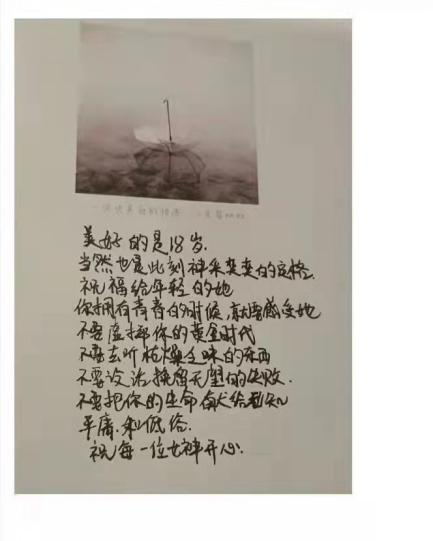 美好的是18岁.
当然也是此刻神采奕奕的定格.
祝福给年轻的她
你拥有青春的时候,就要感受她
不要虚掷你的黄金时代
不要去听枯燥乏味的东西
不要设法挽留无望的失败.
不要把你的生命献给无知
平庸.和低俗.
祝每一位女神开心.